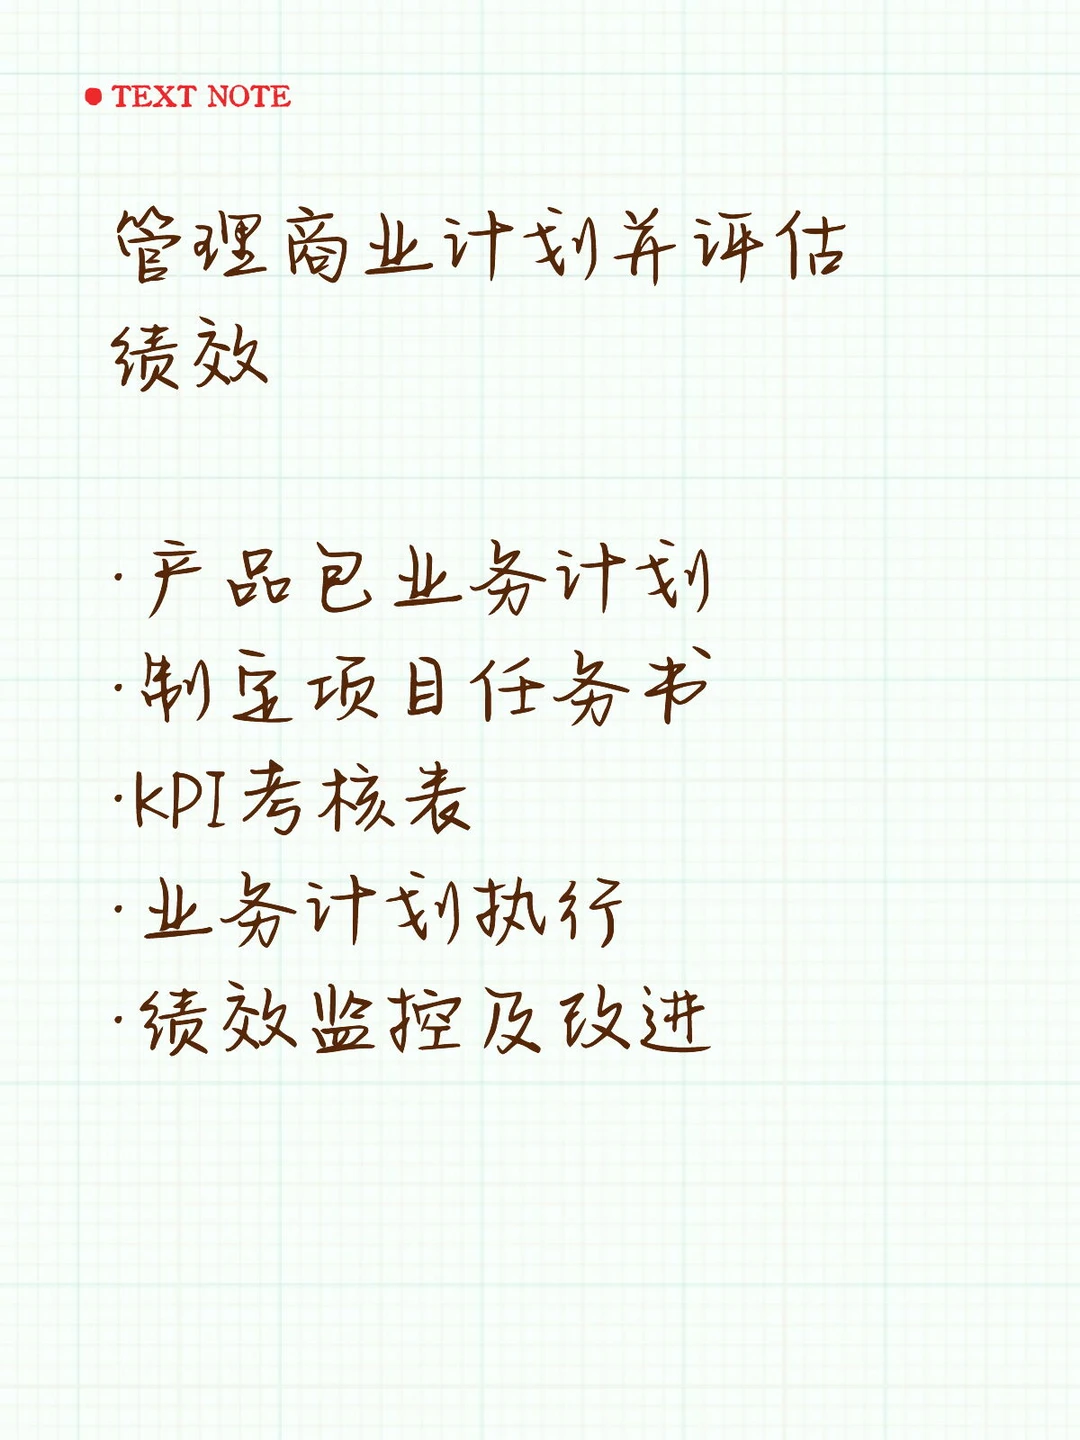 TEXT NOTE
管理商业计划并评估
绩效
·产品包业务计划
·制定项目任务书
·KPI考核表
·业务计划执行
·绩效监控及改进